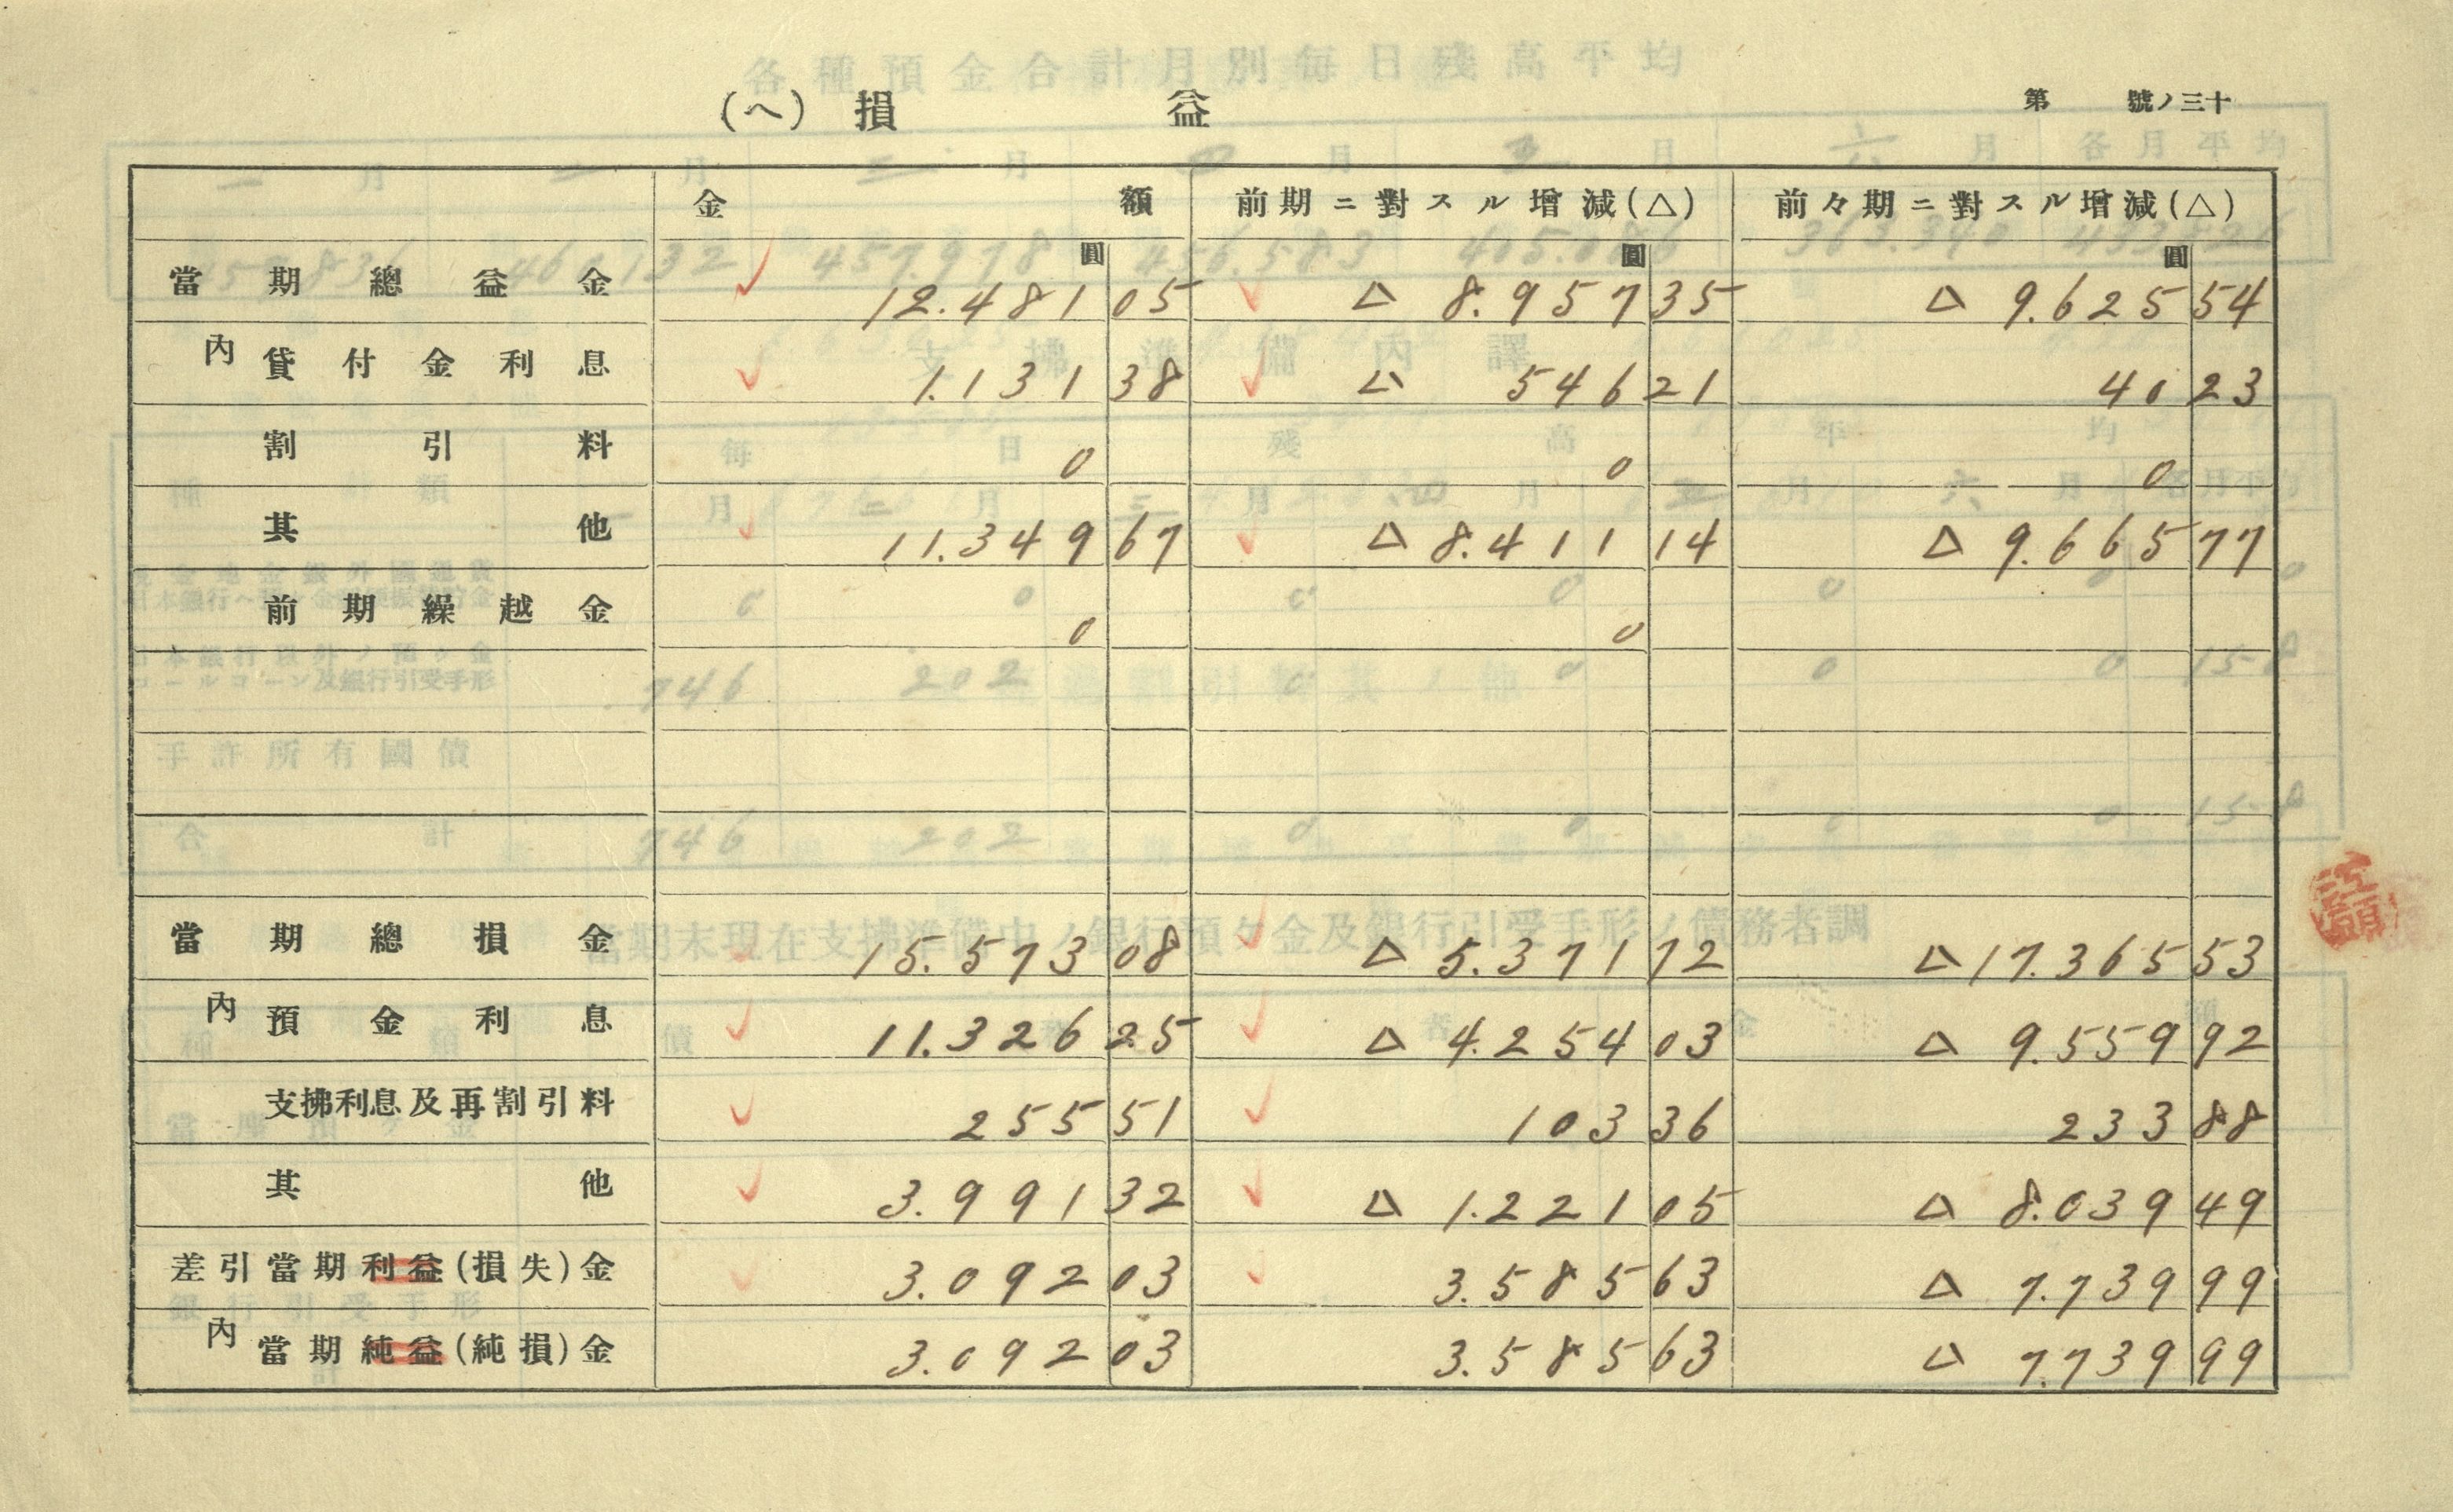 (ヘ) 損益
第 號ノ三十
金額 前期ニ對スル增減(△) 前々期ニ對スル增減(△)
圓 圓 圓
當期總益金 12.481 05 △ 8.957 35 △ 9.625 54
內 貸付金利息 1.131 38 △ 546 21 40 23
割引料 0 0 0
其他 11.349 67 △ 8.411 14 △ 9.665 77
前期繰越金 0 0
當期總損金 15.573 08 △ 5.371 72 △ 17.365 53
內 預金利息 11.326 25 △ 4.254 03 △ 9.559 92
支拂利息及再割引料 255 51 103 36 233 88
其他 3.991 32 △ 1.221 05 △ 8.039 49
差引當期利益(損失)金 3.092 03 3.585 63 △ 7.739 99
內 當期純益(純損)金 3.092 03 3.585 63 △ 7.739 99